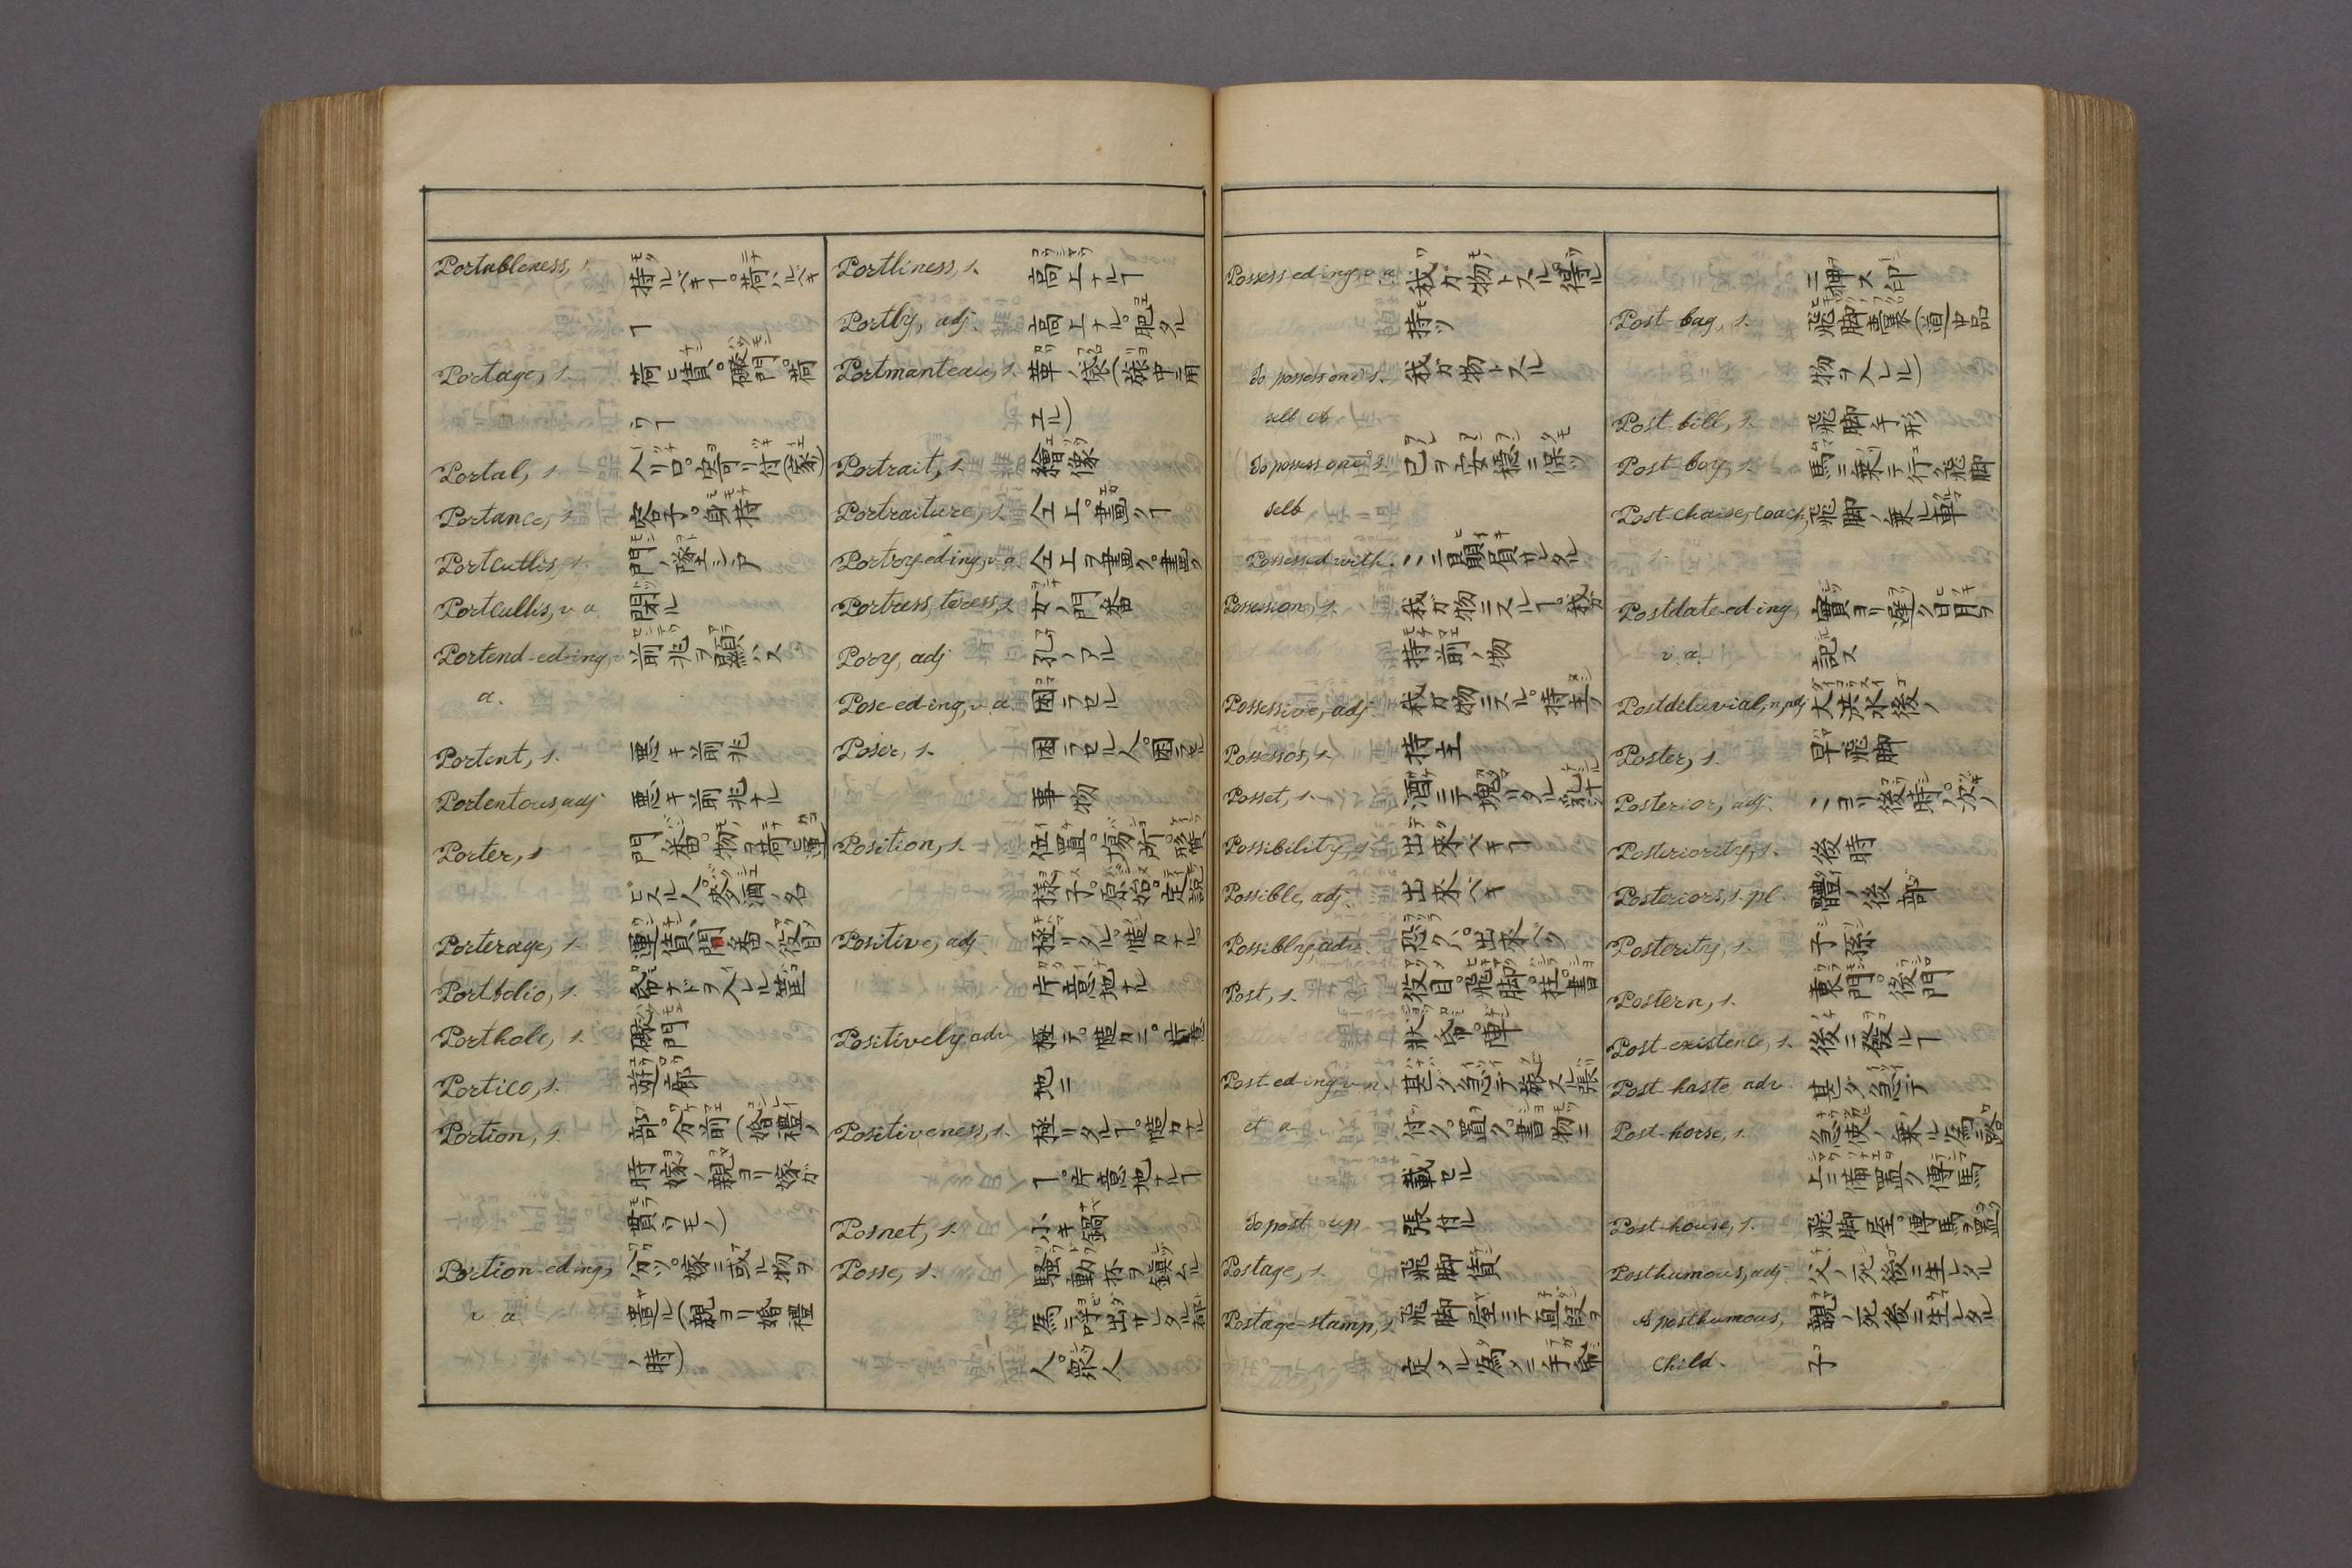 Portableness, s. 持ルベキヿ。荷ハルベキ
ヿ
Portage, s. 荷ヒ賃。礮門。荷
フヿ
Portal, s. 入リ口。空寄リ付(家)
Portance, s. 容子。身持
Portcullis, s. 門ノ墜シ戸
Portcullis, v. a. 閉ル
Portend-ed-ing, v. 前兆ヲ顕ハス
a.
Portent, s. 悪キ前兆
Portentous, adj. 悪キ前兆ナル
Porter, s. 門番。物ヲ荷ヒ運
ビスル人。麥酒ノ名
Porterage, s. 運賃。門番ノ役目
Portfolio, s. 帋ナドヲ入レル筐
Porthole, s. 礮門
Portico, s. 遊廊
Portion, s. 部。分前(婚禮ノ
時嫁ノ親ヨリ嫁ガ
貰フモノ)
Portion-ed-ing, 分ツ。嫁ニ或ル物ヲ
v. a. 遣ル(親ヨリ婚禮
ノ時)
Portliness, s. 高上ナルヿ
Portly, adj. 高上ナル。肥タル
Portmanteau, s. 革ノ袋(旅中ニ用
ユル)
Portrait, s. 繪像
Portraiture, s. 仝上。畫クヿ
Portray-ed-ing, v. a. 仝上ヲ畫ク。畫ク
Portress, teress, s. 女ノ門番
Pory, adj. 孔ノアル
Pose-ed-ing, v. a. 困ラセル
Poser, s. 困ラセル人。困ラセル
事物
Position, s. 位置。塲所。
様子。原始。定説
Positive, adj. 極リタル。慥カナル。
片意地ナル
Positively, adv. 極テ。慥カニ。片意
地ニ
Positiveness, s. 極リタルヿ。慥カナル
ヿ。片意地ナルヿ
Posnet, s. 小キ鍋
Posse, s. 騒動杯ヲ鎮ムル
為ニ呼出サレタル
人。衆人
Possess-ed-ing, v. a. 我ガ物トスル。得ル
持ツ
To possess one's 我ガ物トスル
self of
To possess one's 己ヲ安穏ニ保ツ
self
Possessed with. 〃ニ贔屓サレタル
Possession, s. 我ガ物ニスルヿ。我ガ
持前ノ物
Possessive, adj. 我ガ物ニスル。持主ノ
Possessor, s. 持主
Posset, s. 酒ニテ塊リタル乳汁
Possibility, s. 出来ベキヿ
Possible, adj. 出来ベキ
Possibly, adv. 恐クハ。出来ベク
Post, s. 役目。飛脚。柱。書
状帋。陣
Post-ed-ing, v. n. 甚ダ急デ旅スル。張
et a. 付ク。置ク。書物ニ
載セル
To post up 張付ル
Postage, s. 飛脚賃
Postage-stamp, s. 飛脚屋ニテ直段ヲ
定メル為メニ手帋
ニ押ス印
Post-bag, s. 飛脚嚢(道中品
物ヲ入レル)
Post-bill, s. 飛脚手形
Post-boy, s. 馬ニ乗リテ行ク飛脚
Post-chaise, coach, 飛脚ノ乗ル車
s.
Postdate-ed-ing, 實ヨリ遅ク日月ヲ
v. a. 記ス
Postdiluvial, n, adj. 大洪水後ノ
Poster, s. 早飛脚
Posterior, adj. 〃ヨリ後時ノ。次ノ
Posteriority, s. 後時
Posteriors, s. pl. 體ノ後部
Posterity, s. 子孫
Postern, s. 裏門。後門
Post-existence, s. 後ニ發ルヿ
Post-haste, adv. 甚ダ急デ
Post-horse, s. 急使ノ乗ル為ニ路
上ニ備置ク傳馬
Post-house, s. 飛脚屋。傳馬ヲ置ク
Posthumous, adj. 父ノ死後ニ生レタル
A posthumous, 親ノ死後ニ生レタル
child. 子